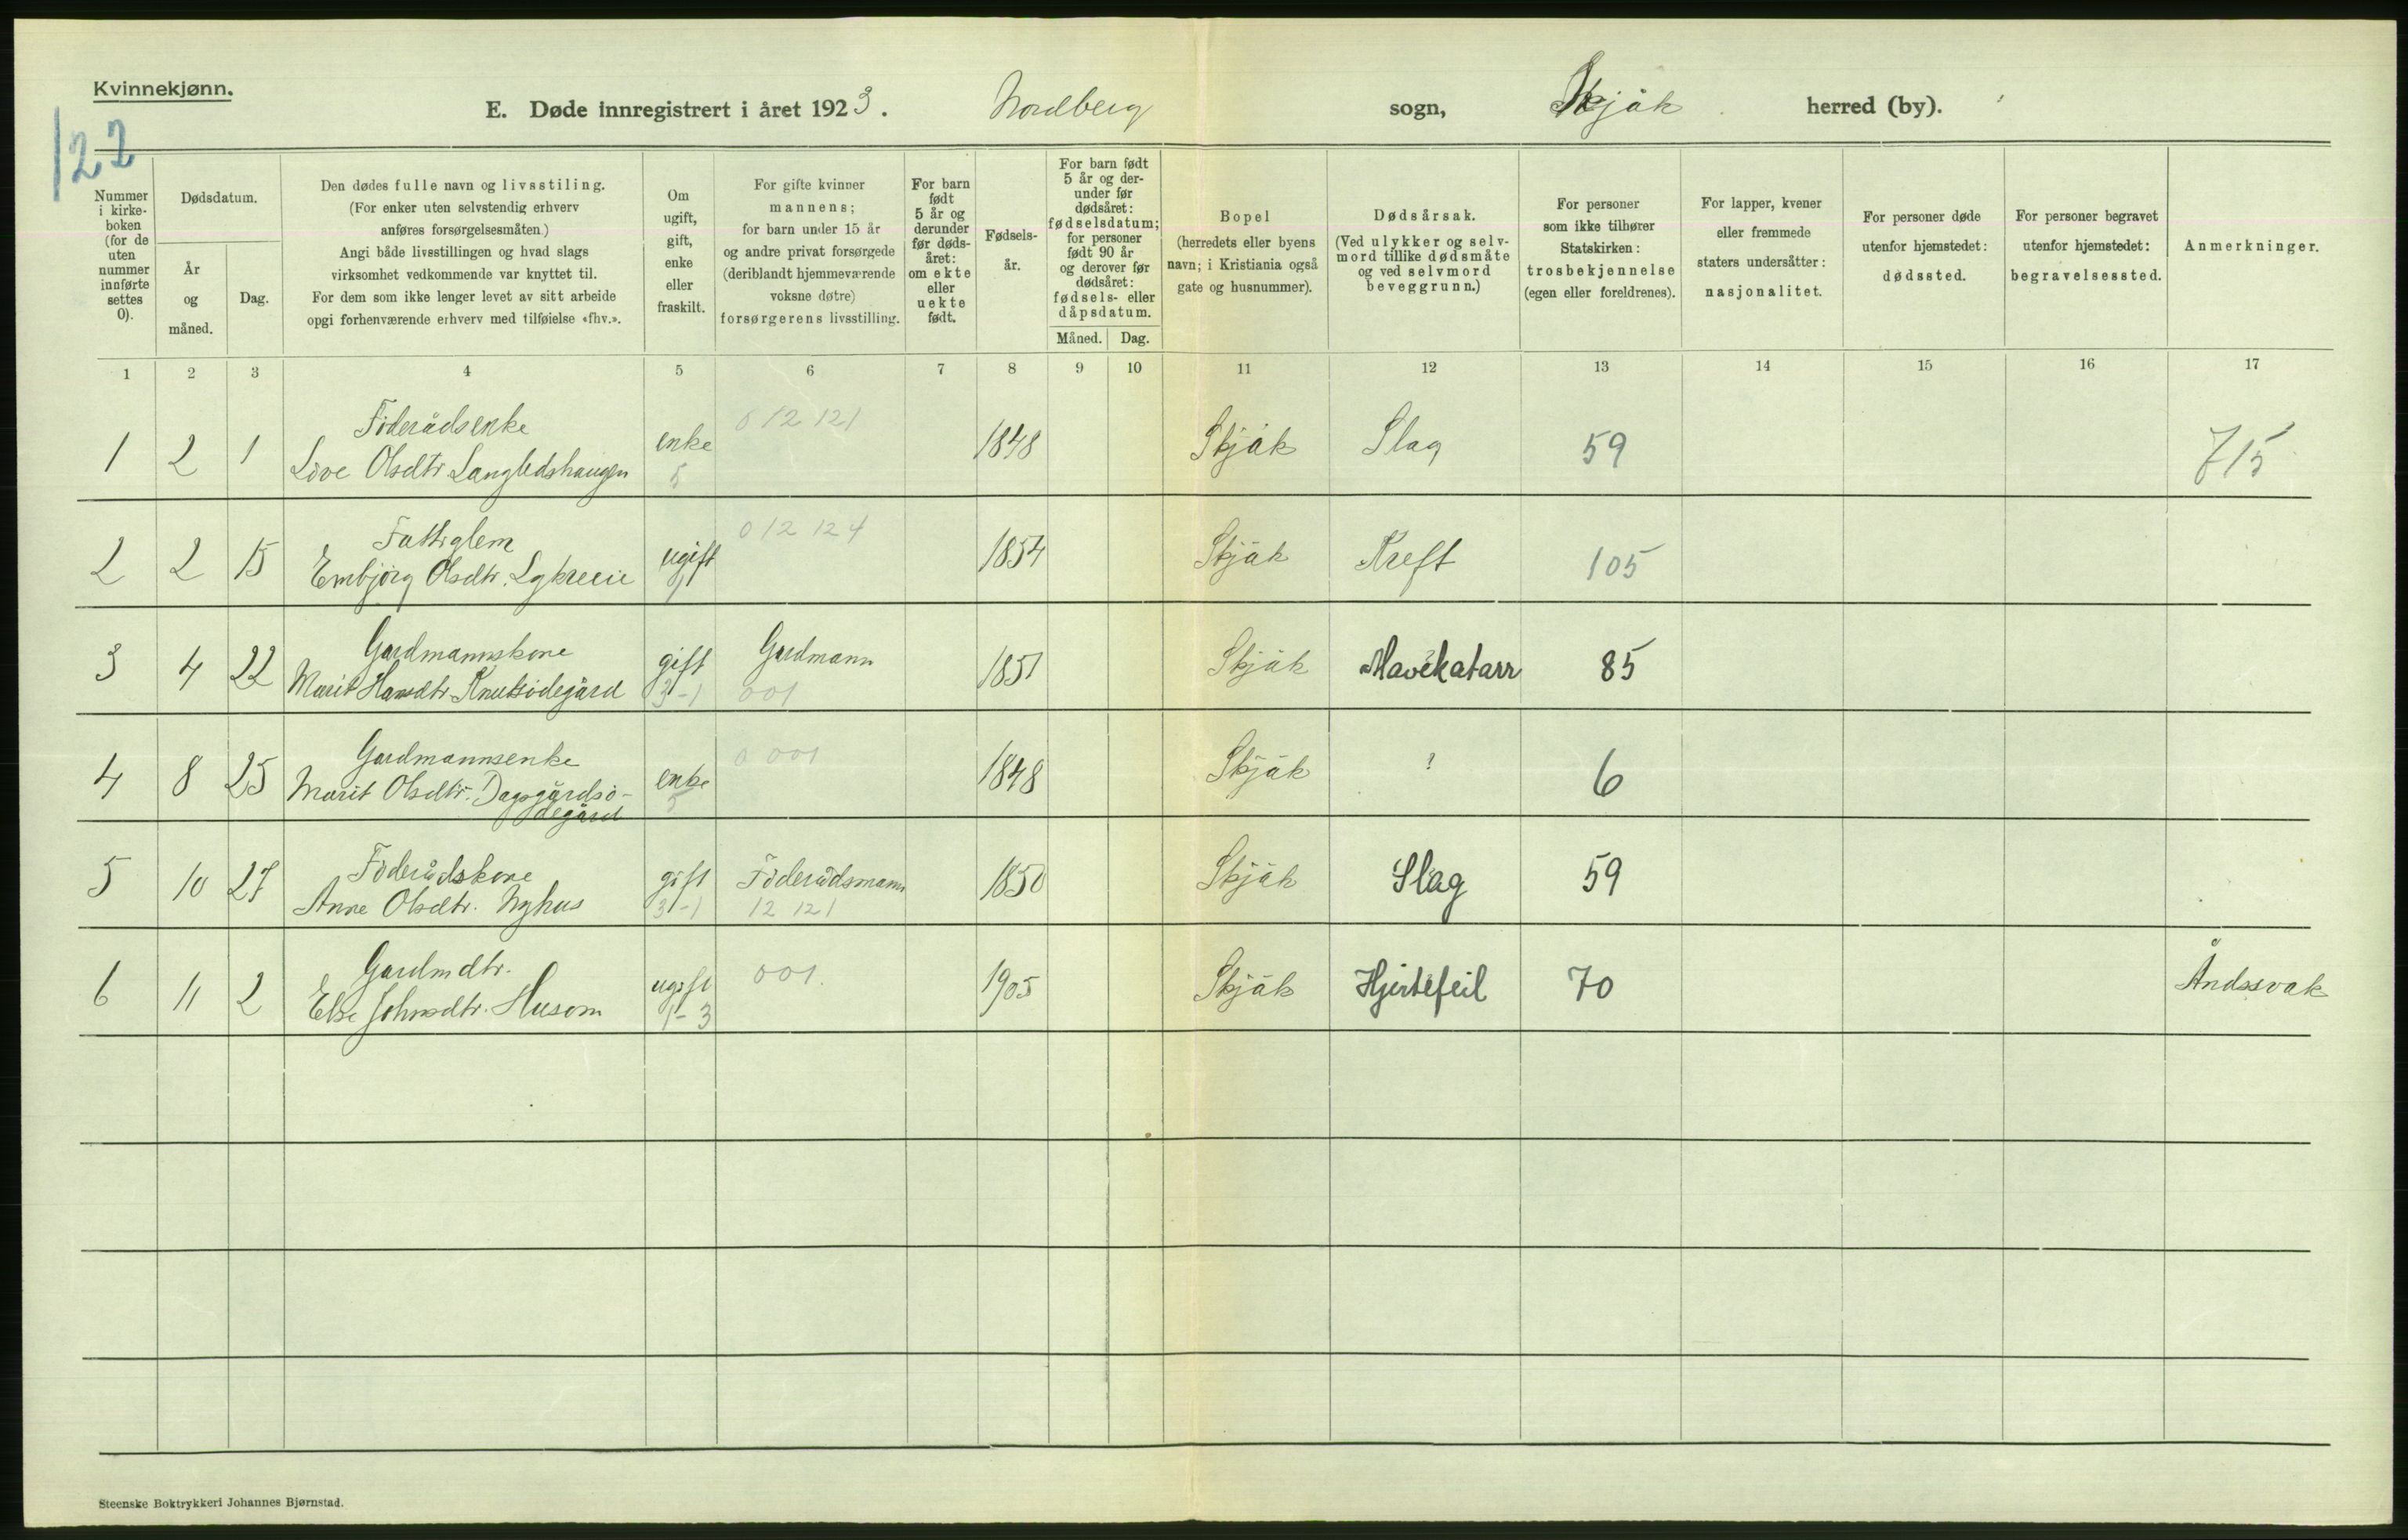 Kvinnekjønn.
E. Døde innregistrert i året 1923. Nordberg sogn, Skjåk herred (by).
122
Nummer i kirke- boken (for de uten nummer innførte settes 0).
Dødsdatum.
År og måned.
Dag.
Den dødes fulle navn og livsstiling.
(For enker uten selvstendig erhverv
anføres forsørgelsesmåten.)
Angi både livsstillingen og hvad slags
virksomhet vedkommende var knyttet til.
For dem som ikke lenger levet av sitt arbeide
opgi forhenværende erhverv med tilføielse «fhv.».
Om ugift, gift, enke eller fraskilt.
For gifte kvinner
mannens;
for barn under 15 år
og andre privat forsørgede
(deriblandt hjemmeværende
voksne døtre)
forsørgerens livsstilling.
For barn født 5 år og derunder før døds- året: om ekte eller uekte født.
Fødsels- år.
For barn født
5 år og der-
under før
dødsåret:
fødselsdatum;
for personer
født 90 år
og derover før
dødsåret:
fødsels- eller
dåpsdatum.
Måned. Dag.
Bopel
(herredets eller byens
navn; i Kristiania også
gate og husnummer).
Dødsårsak.
(Ved ulykker og selv-
mord tillike dødsmåte
og ved selvmord
beveggrunn.)
For personer
som ikke tilhører
Statskirken:
trosbekjennelse
(egen eller foreldrenes).
For lapper, kvener
eller fremmede
staters undersåtter:
nasjonalitet.
For personer døde
utenfor hjemstedet:
dødssted.
For personer begravet
utenfor hjemstedet:
begravelsessted.
Anmerkninger.
1 2 3 4 5 6 7 8 9 10 11 12 13 14 15 16 17
Föderådsenke 0 12 121
1 2 1 Love Olsdtr Langledshaugen enke 1848 Skjåk Slag 59 715
5
Fattiglem 0 12 124
2 2 15 Embjörg Olsdtr. ugift 1854 Skjåk Kreft 105
1
Gardmannskone Gardmann
3 4 22 Marit Hansdtr. Knutsödegård gift 1851 Skjåk Mavekatarr 85
3-1 001
Gardmannsenke 0 001
4 8 25 Marit Olsdtr. Dagsgårdsö- enke 1848 Skjåk ? 6
degård 5
Föderådskone Föderådsmann
5 10 27 Anne Olsdtr. Nyhus gift 1850 Skjåk Slag 59
3-1 12 121
Gardmdtr. 001.
6 11 2 Else Johnsdtr. Husom ugift 1905 Skjåk Hjertefeil 70 Åndssvak
1-3
Steenske Boktrykkeri Johannes Bjørnstad.